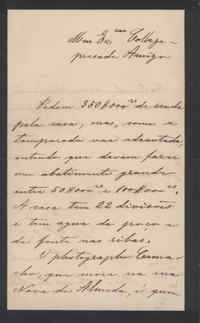 Meu Ex.mo Collega
presado Amigo
Pedem 350$000 rs de renda
pela casa, mas, como a
temporada vae adeantada,
entendo que devem fazer
um abatimento grande
entre 50$000 rs e 100$000 rs.
A casa tem 22 divisões
e tem agua de poço e
de fonte nas
O photographo Cama-
cho, que mora na rua
Nova de Almada, é quem